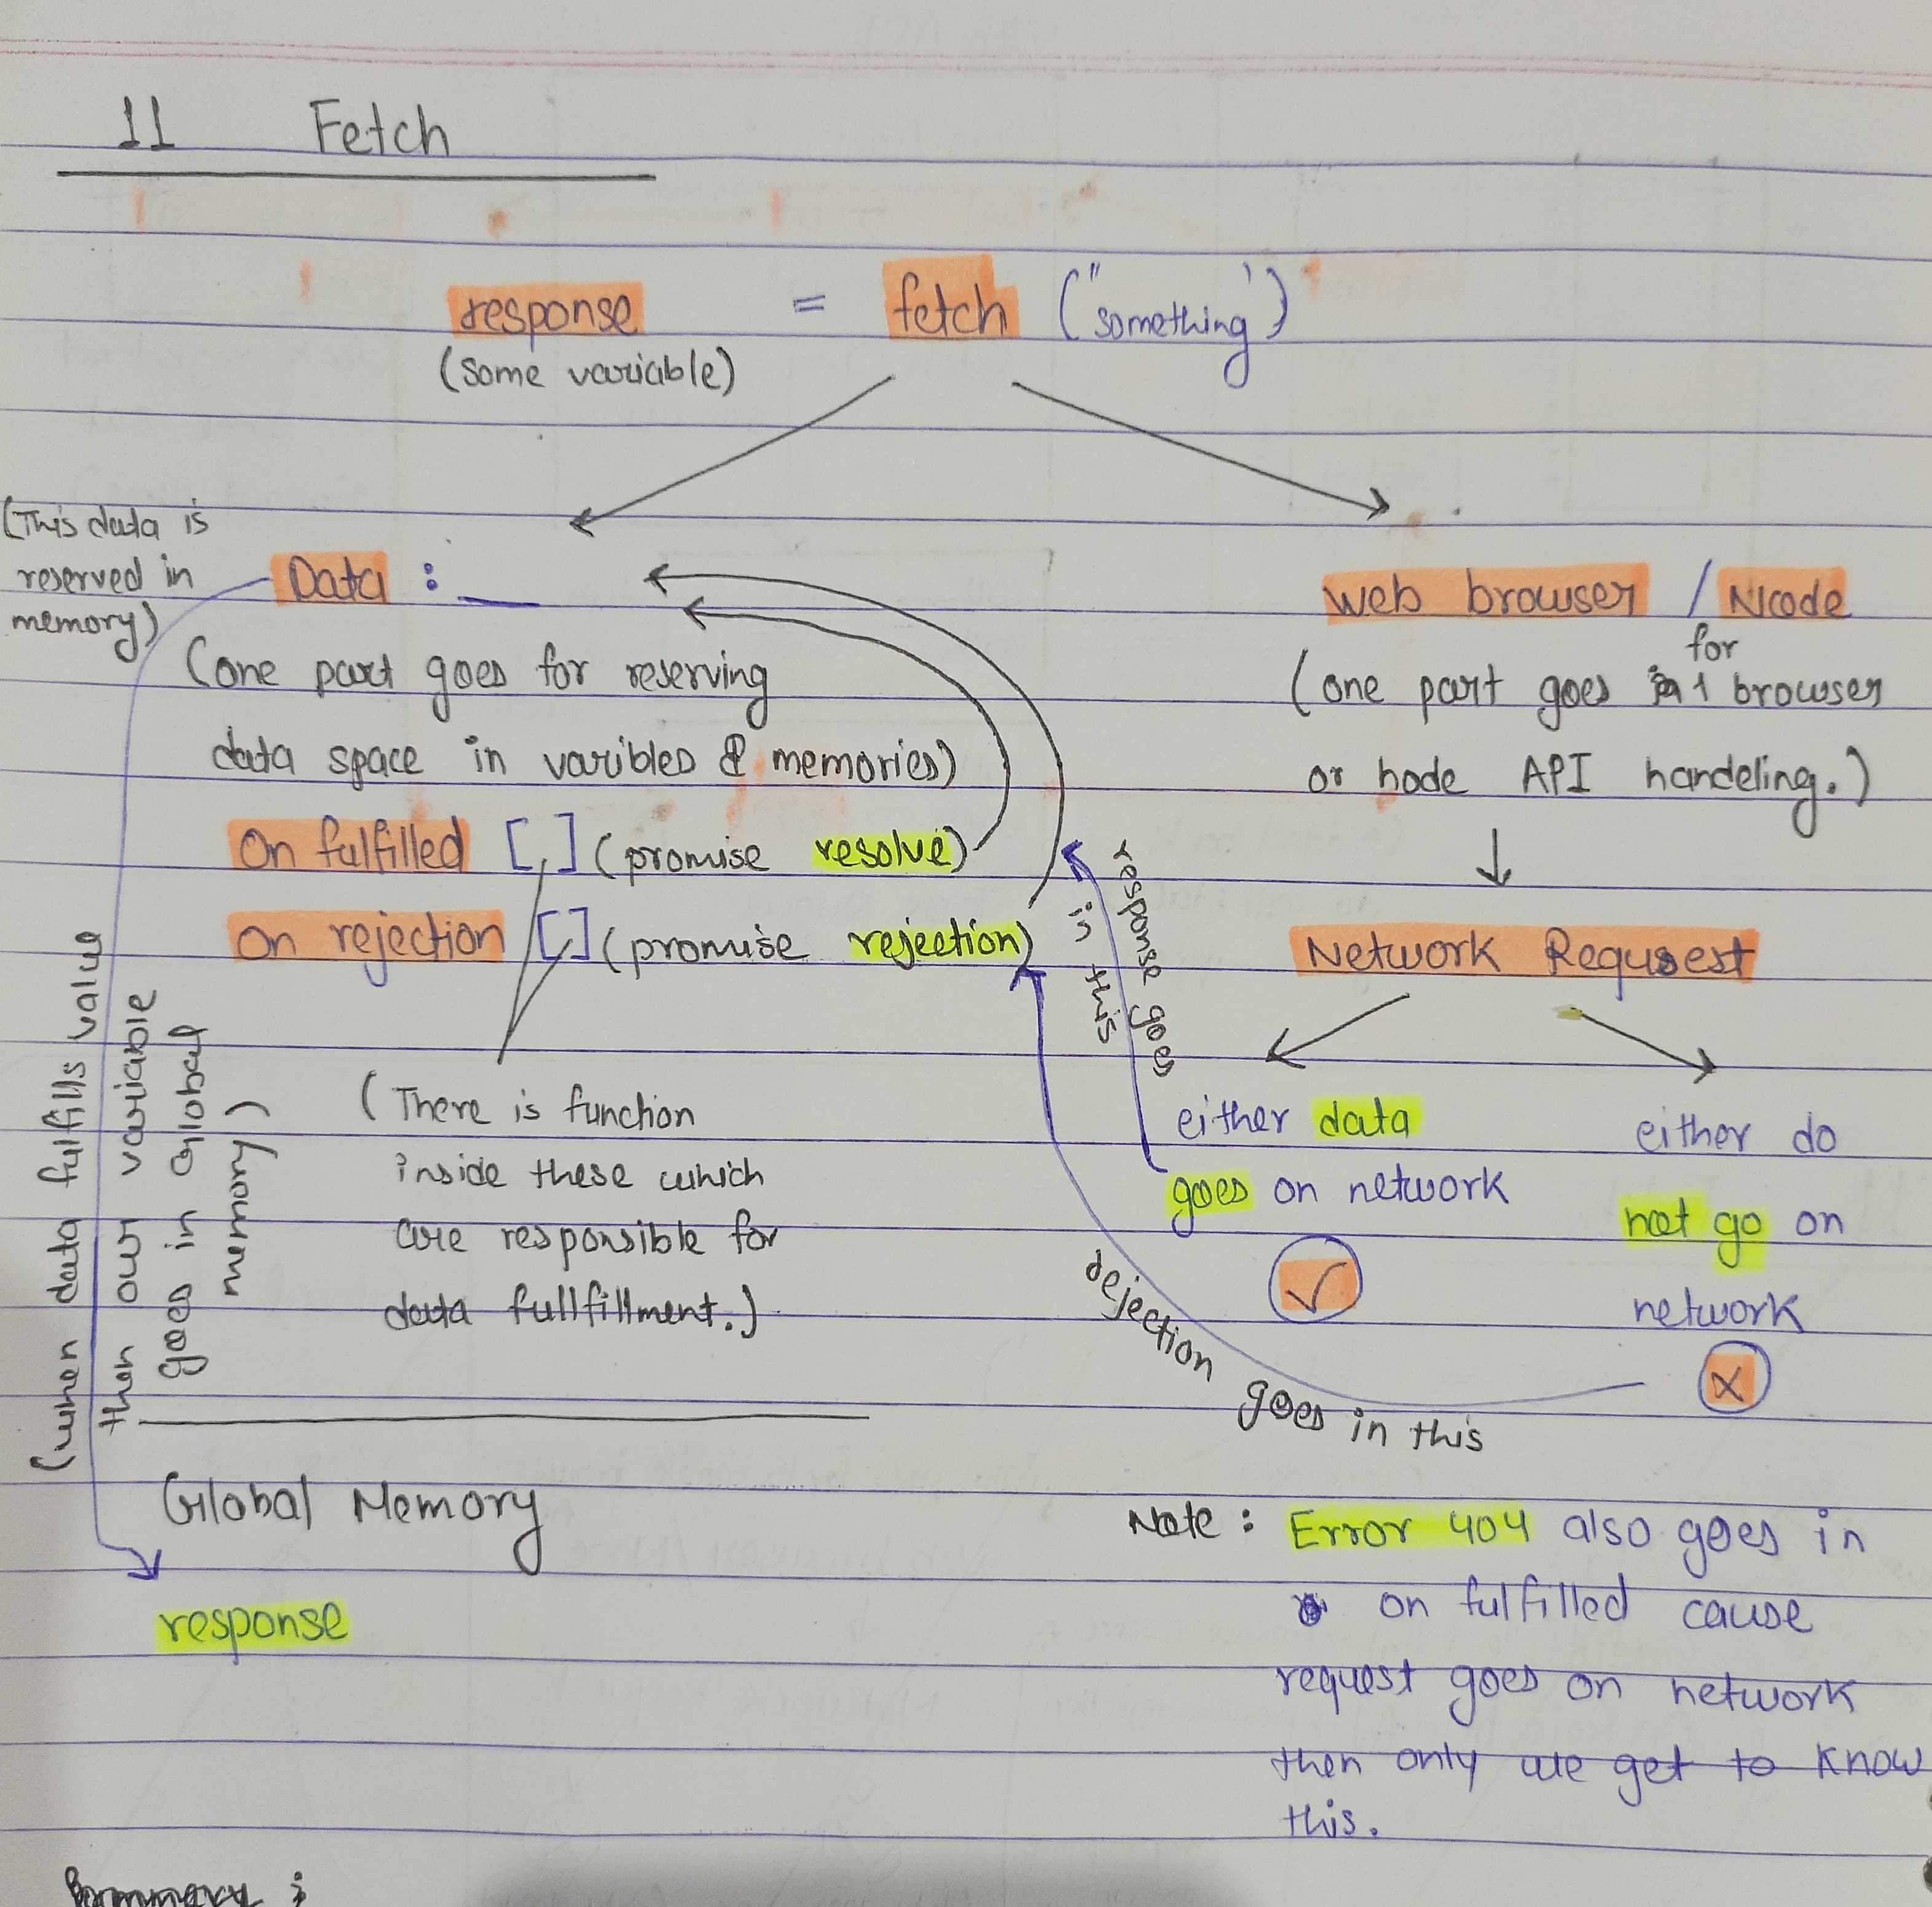 11 Fetch
response = fetch ("something')
(some variable)
(This data is
reserved in
memory)
Data : __
(one part goes for reserving
data space in varibles & memories)
On fulfilled [,] (promise resolve)
On rejection [,] (promise rejection)
(There is function
inside these which
are responsible for
data fullfillment.)
(when data fulfills value
then our variable
goes in Global
memory)
web browser / Node
for
(one part goes 1 browser
or node API handeling.)
Network Request
either data
goes on network
✓
either do
not go on
network
x
response goes
in this
rejection goes in this
Global Memory
response
Note : Error 404 also goes in
on fulfilled cause
request goes on network
then only we get to know
this.